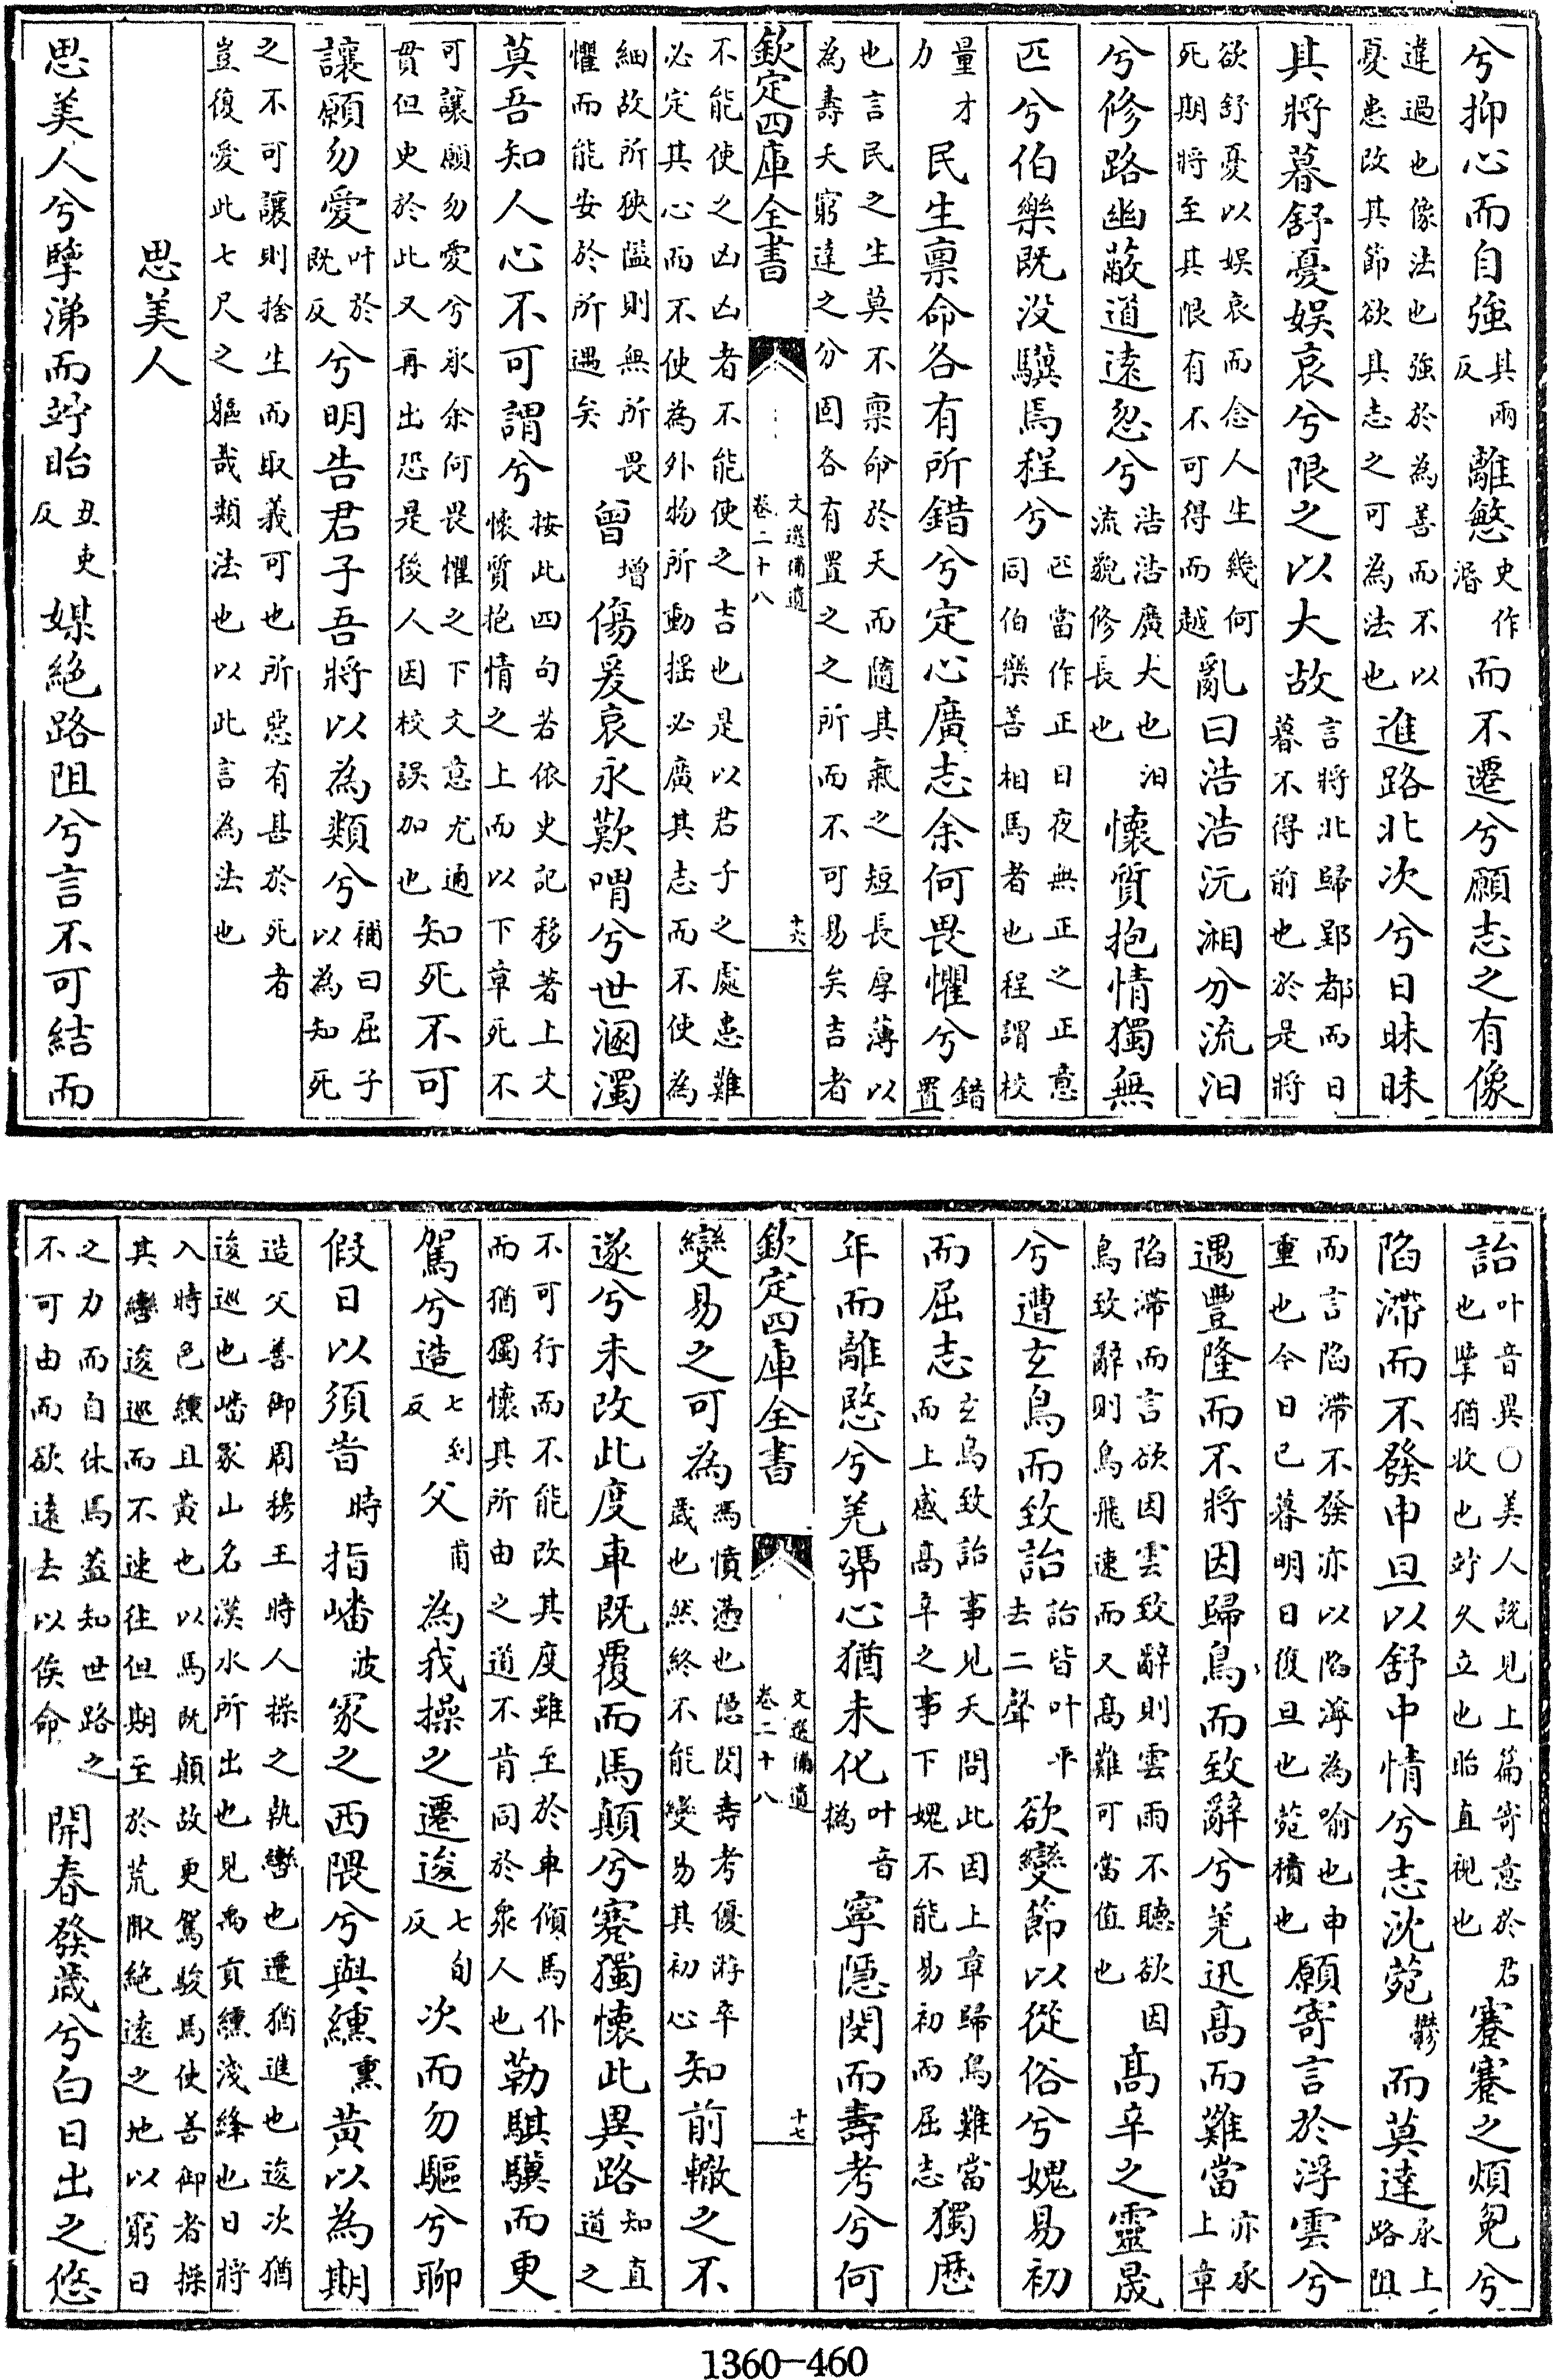 兮抑心而自強其兩反離慜史作湣而不遷兮願志之有像
違過也像法也強於為善而不以憂患改其節欲其志之可為法也進路北次兮日昧昧
其將暮舒憂娛哀兮限之以大故言將北歸郢都而日暮不得前也於是將
欲舒憂以娛哀而念人生幾何死期將至其限有不可得而越亂曰浩浩沅湘分流汨
兮修路幽蔽道遠忽兮浩浩廣大也汨流貌修長也懷質抱情獨無
匹兮伯樂既没驥焉程兮匹當作正日夜無正之正意同伯樂善相馬者也程謂校
量才力民生禀命各有所錯兮定心廣志余何畏懼兮錯置
也言民之生莫不禀命於天而隨其氣之短長厚薄以為壽夭窮達之分固各有置之之所而不可易矣吉者
欽定四庫全書 文選補遺卷二十八 十六
不能使之凶凶者不能使之吉也是以君子之處患難必定其心而不使為外物所動揺必廣其志而不使為
細故所狹隘則無所畏懼而能安於所遇矣曾增傷爰哀永歎喟兮世溷濁
莫吾知人心不可謂兮按此四句若依史記移著上文懷質抱情之上而以下章死不
可讓願勿愛兮承余何畏懼之下文意尤通貫但史於此又再出恐是後人因校誤加也知死不可
讓願勿愛叶於既反兮明告君子吾將以為類兮補曰屈子以為知死
之不可讓則捨生而取義可也所惡有甚於死者豈復愛此七尺之軀哉類法也以此言為法也
思美人
思美人兮擥涕而竚眙丑吏反媒絶路阻兮言不可結而
詒叶音異○美人説見上篇寄意於君也擥猶收也竚久立也眙直視也蹇蹇之煩冤兮
陷滯而不發申旦以舒中情兮志沈菀鬱而莫達承上路阻
而言陷滯不發亦以陷濘為喻也申重也今日已暮明日復旦也菀積也願寄言於浮雲兮
遇豐隆而不將因歸鳥而致辭兮羌迅高而難當亦承上章
陷滯而言欲因雲致辭則雲雨不聽欲因鳥致辭則鳥飛速而又高難可當值也高辛之靈晟
兮遭玄鳥而致詒詒皆叶平去二聲欲變節以從俗兮媿易初
而屈志玄鳥致詒事見天問此因上章歸鳥難當而上感高辛之事下媿不能易初而屈志獨歴
年而離愍兮羌馮心猶未化叶音撝寧隱閔而壽考兮何
欽定四庫全書 文選補遺卷二十八 十七
變易之可為馮憤懣也隱閔壽考優游卒歲也然終不能變易其初心知前轍之不
遂兮未改此度車既覆而馬顛兮蹇獨懷此異路知直道之
不可行而不能改其度雖至於車傾馬仆而猶獨懷其所由之道不肯同於衆人也勒騏驥而更
駕兮造七到反父甫為我操之遷逡七旬反次而勿驅兮聊
假日以須旹時指嶓波冢之西隈兮與纁熏黃以為期
造父善御周穆王時人操之執轡也遷猶進也逡次猶逡巡也嶓冢山名漢水所出也見禹貢纁淺絳也日將
入時色纁且黃也以馬既顛故更駕駿馬使善御者操其轡逡巡而不速往但期至於荒陬絶遠之地以窮日
之力而自休焉蓋知世路之不可由而欲遠去以俟命開春發歲兮白日出之悠
1360—460